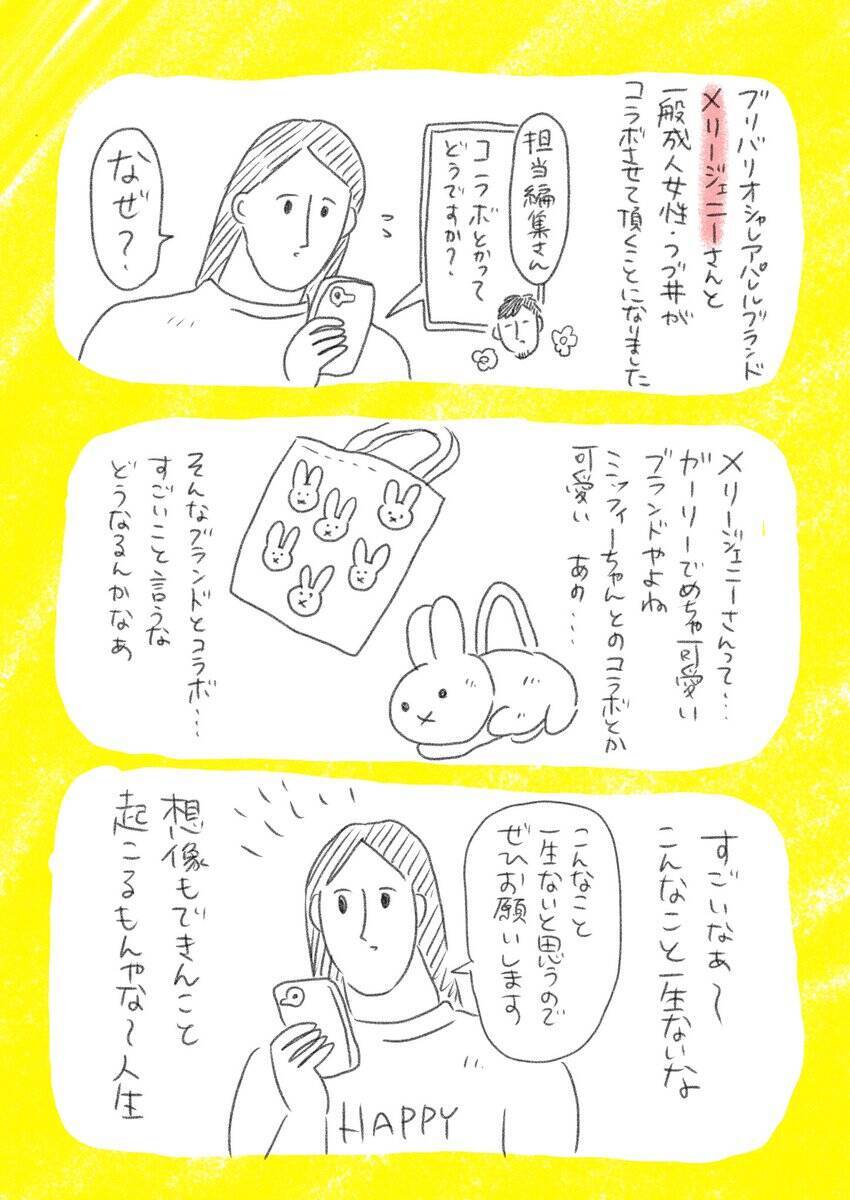 ブリバリオシャレアパレルブランド
メリージェニーさんと
一般成人女性・つづ井が
コラボさせて頂くことになりました
担当編集さん
コラボとかって
どうですか?
なぜ?
メリージェニーさんって…
ガーリーでめちゃ可愛い
ブランドやよね
ミッフィーちゃんとのコラボとか
可愛い あの…
そんなブランドとコラボ…
すごいこと言うな
どうなるんかなあ
すごいなぁ〜
こんなこと一生ないな
こんなこと
一生ないと思うので
ぜひお願いします
想像もできんこと
起こるもんやな〜人生
HAPPY